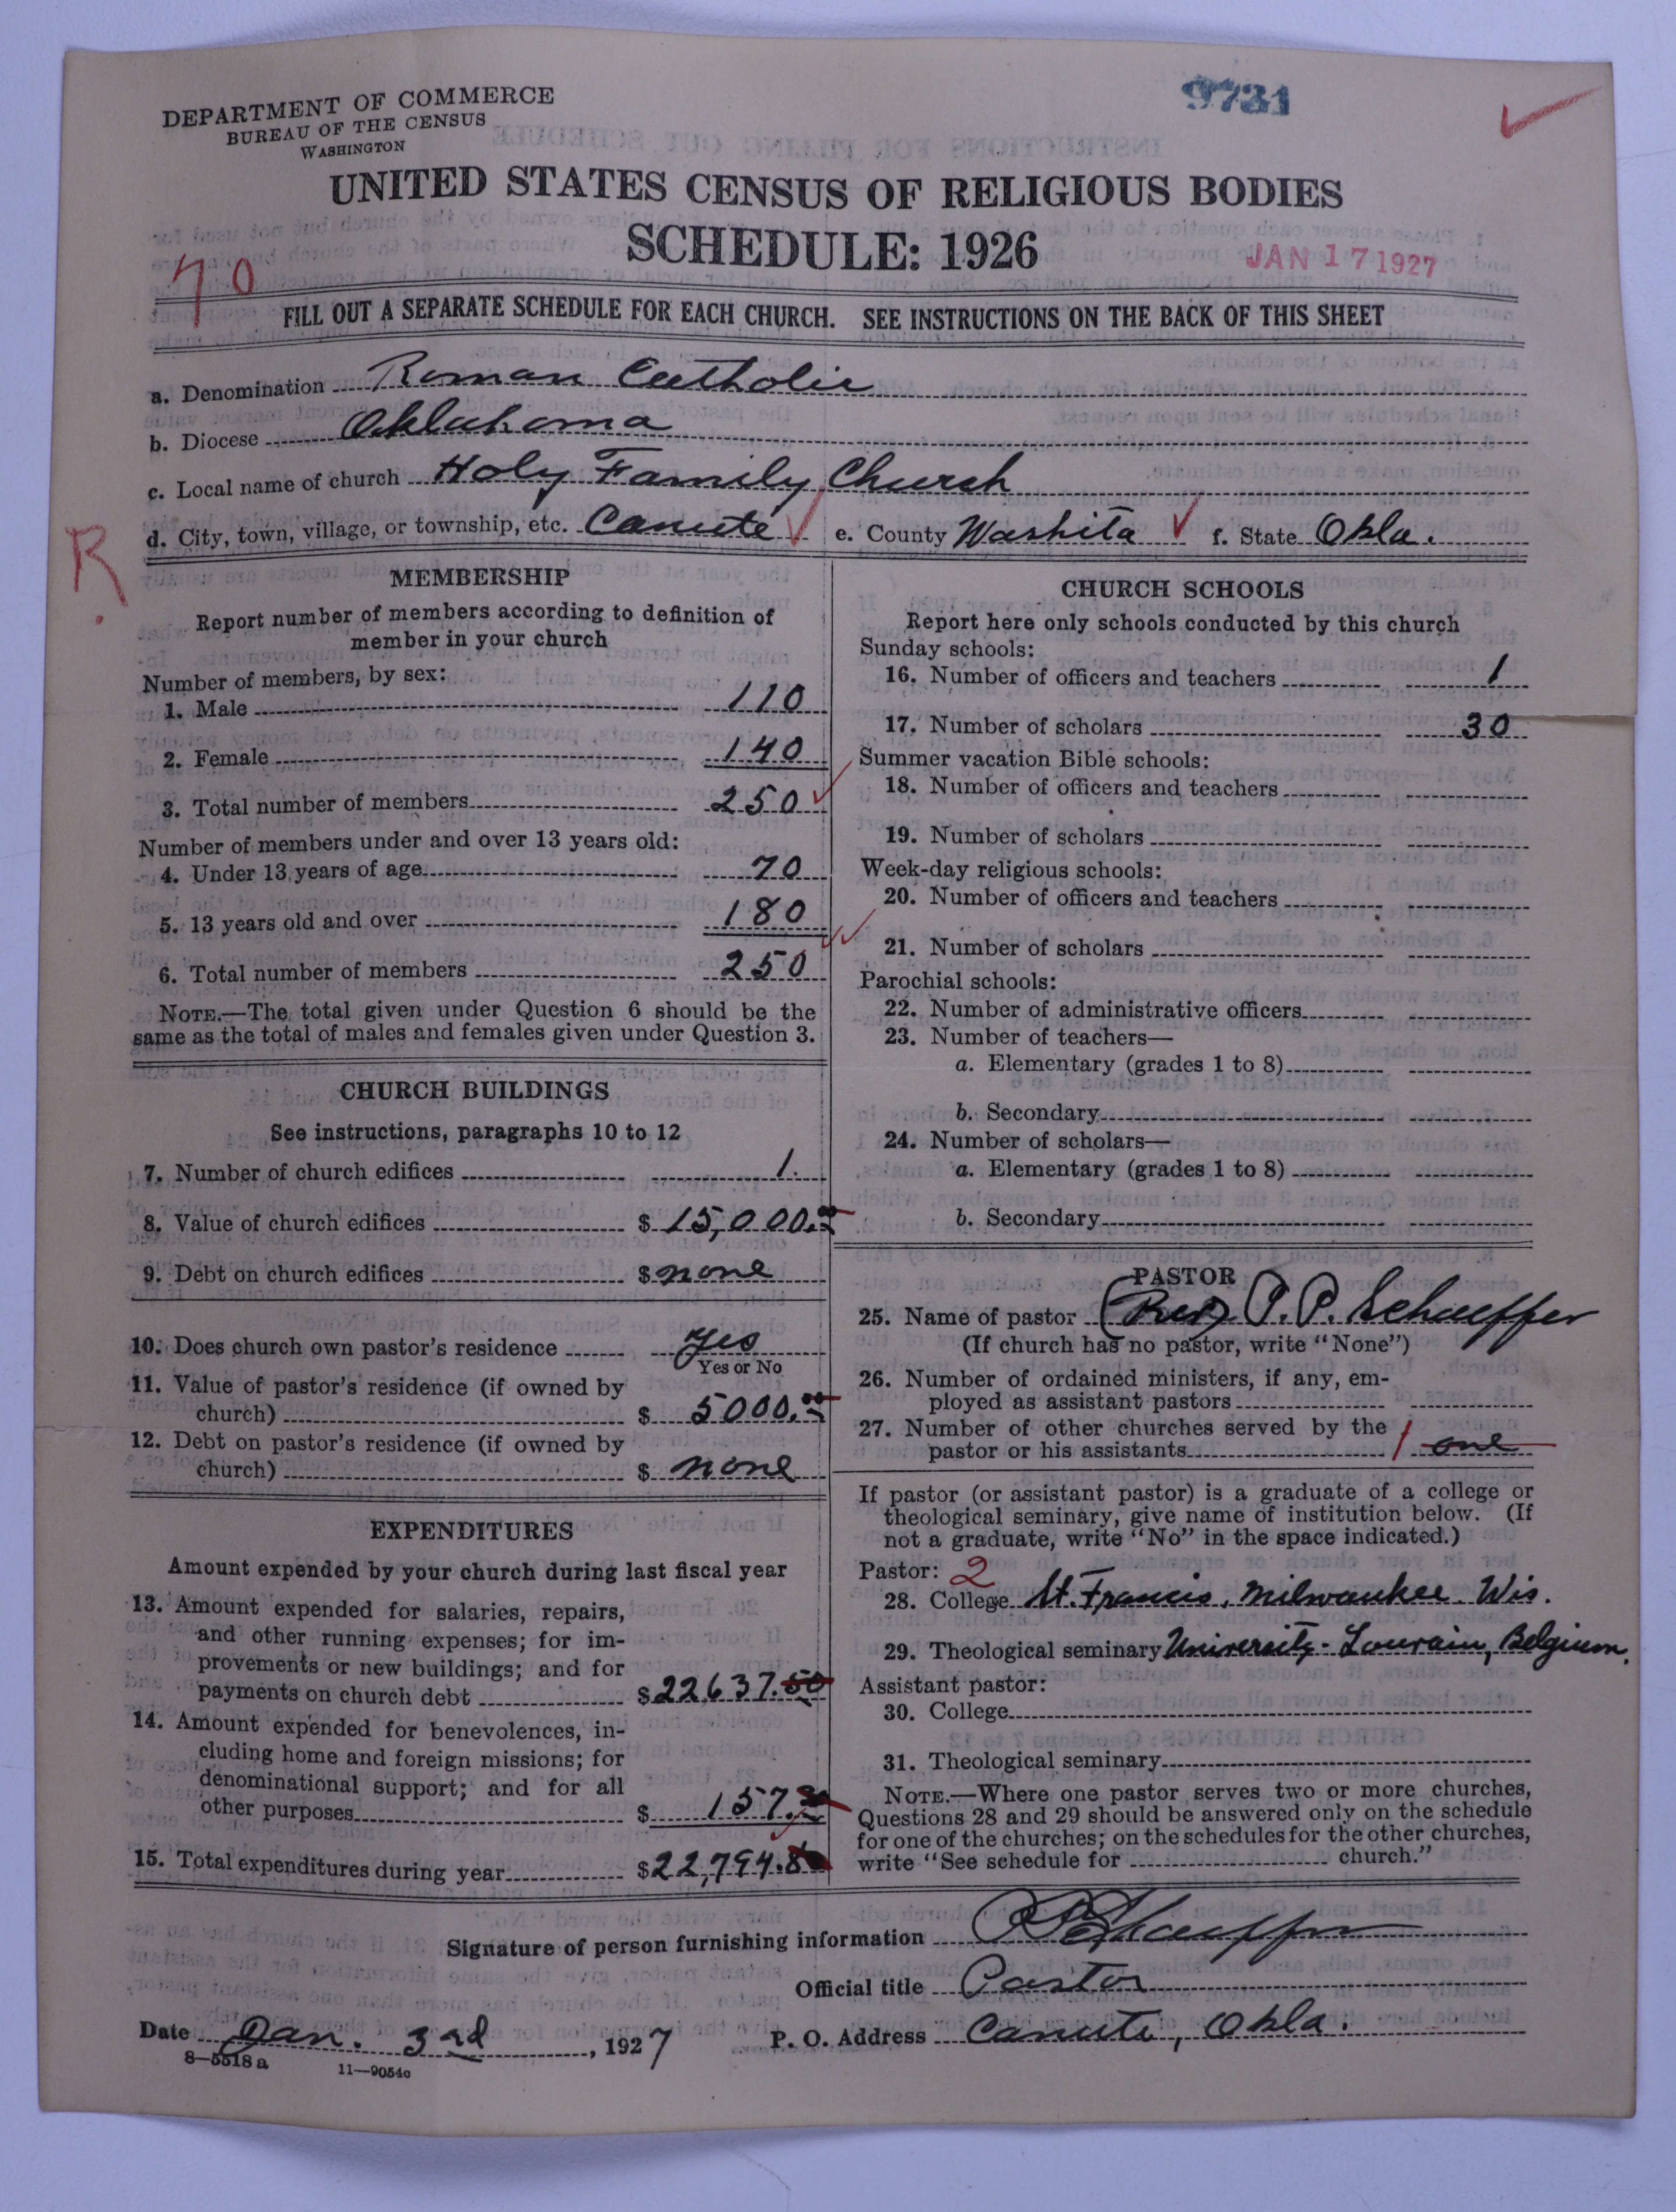 DEPARTMENT OF COMMERCE
BUREAU OF THE CENSUS
WASHINGTON
9731
UNITED STATES CENSUS OF RELIGIOUS BODIES
SCHEDULE: 1926
JAN 17 1927
70
FILL OUT A SEPARATE SCHEDULE FOR EACH CHURCH. SEE INSTRUCTIONS ON THE BACK OF THIS SHEET
a. Denomination Roman Catholic
b. Diocese Oklahoma
c. Local name of church Holy Family Church
d. City, town, village, or township, etc. Canute e. County Washita f. State Okla.
R
MEMBERSHIP
Report number of members according to definition of
member in your church
Number of members, by sex:
1. Male 110
2. Female 140
3. Total number of members 250
Number of members under and over 13 years old:
4. Under 13 years of age 70
5. 13 years old and over 180
6. Total number of members 250
NOTE.—The total given under Question 6 should be the
same as the total of males and females given under Question 3.
CHURCH BUILDINGS
See instructions, paragraphs 10 to 12
7. Number of church edifices 1.
8. Value of church edifices $ 15,000.00
9. Debt on church edifices $ none
10. Does church own pastor's residence yes
Yes or No
11. Value of pastor's residence (if owned by
church) $ 5000.00
12. Debt on pastor's residence (if owned by
church) $ none
EXPENDITURES
Amount expended by your church during last fiscal year
13. Amount expended for salaries, repairs,
and other running expenses; for im-
provements or new buildings; and for
payments on church debt $ 22637.50
14. Amount expended for benevolences, in-
cluding home and foreign missions; for
denominational support; and for all
other purposes $ 157.
15. Total expenditures during year $ 22,794.
CHURCH SCHOOLS
Report here only schools conducted by this church
Sunday schools:
16. Number of officers and teachers 1
17. Number of scholars 30
Summer vacation Bible schools:
18. Number of officers and teachers
19. Number of scholars
Week-day religious schools:
20. Number of officers and teachers
21. Number of scholars
Parochial schools:
22. Number of administrative officers
23. Number of teachers—
a. Elementary (grades 1 to 8)
b. Secondary
24. Number of scholars—
a. Elementary (grades 1 to 8)
b. Secondary
PASTOR
25. Name of pastor (Rev) P. P. Schaeffer
(If church has no pastor, write "None")
26. Number of ordained ministers, if any, em-
ployed as assistant pastors
27. Number of other churches served by the
pastor or his assistants 1 one
If pastor (or assistant pastor) is a graduate of a college or
theological seminary, give name of institution below. (If
not a graduate, write "No" in the space indicated.)
Pastor: 2
28. College St. Francis, Milwaukee Wis.
29. Theological seminary University - Louvain, Belgium.
Assistant pastor:
30. College
31. Theological seminary
NOTE.—Where one pastor serves two or more churches,
Questions 28 and 29 should be answered only on the schedule
for one of the churches; on the schedules for the other churches,
write "See schedule for church."
Signature of person furnishing information P P Schaeffer
Official title Pastor
Date Jan. 3rd, 1927 P. O. Address Canute, Okla.
8—5518 a 11—9054c